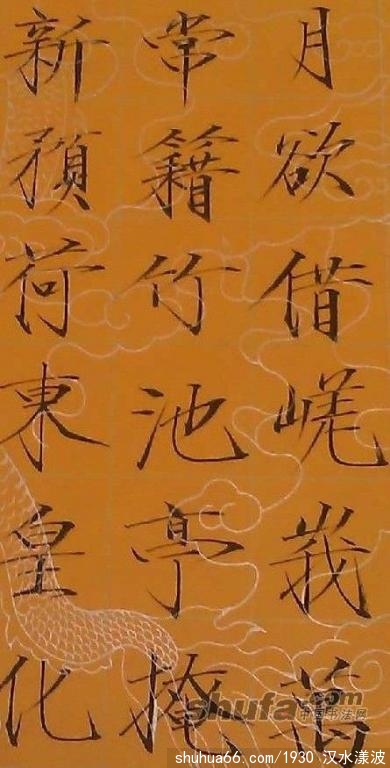 月欲借嵯峩
常籍竹池亭掩
新預荷東皇化
中国书法网
shuhua66.com/1930 汉水漾波